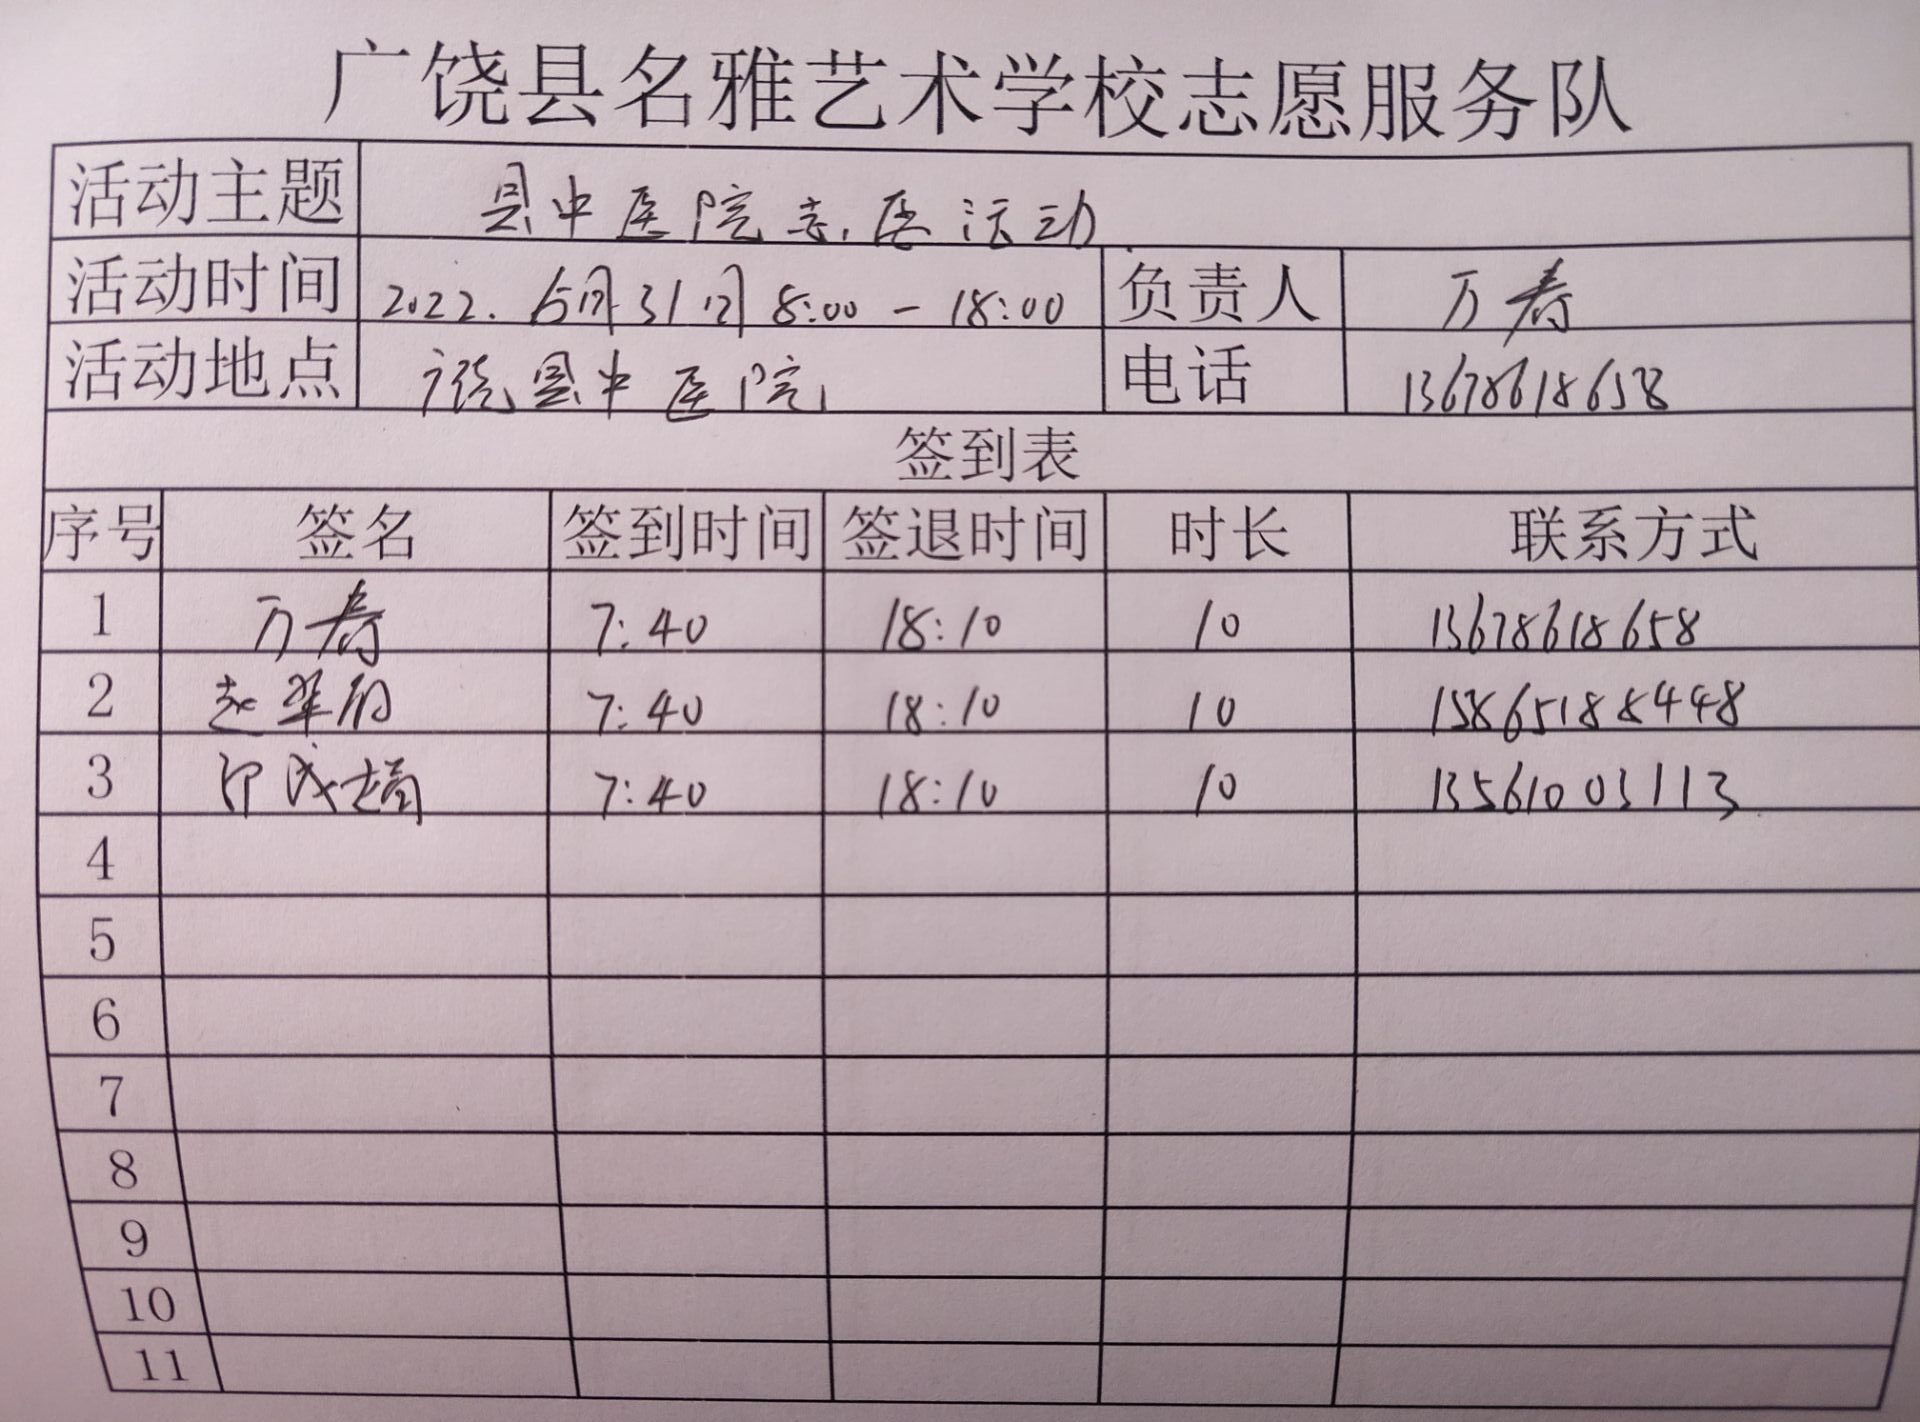 广饶县名雅艺术学校志愿服务队
活动主题 县中医院志愿活动
活动时间 2022.5月31日8:00-18:00 负责人 万寿
活动地点 广饶县中医院 电话 13678618658
签到表
序号 签名 签到时间 签退时间 时长 联系方式
1 万寿 7:40 18:10 10 13678618658
2 7:40 18:10 10 15865188448
3 7:40 18:10 10 13561003113
4
5
6
7
8
9
10
11